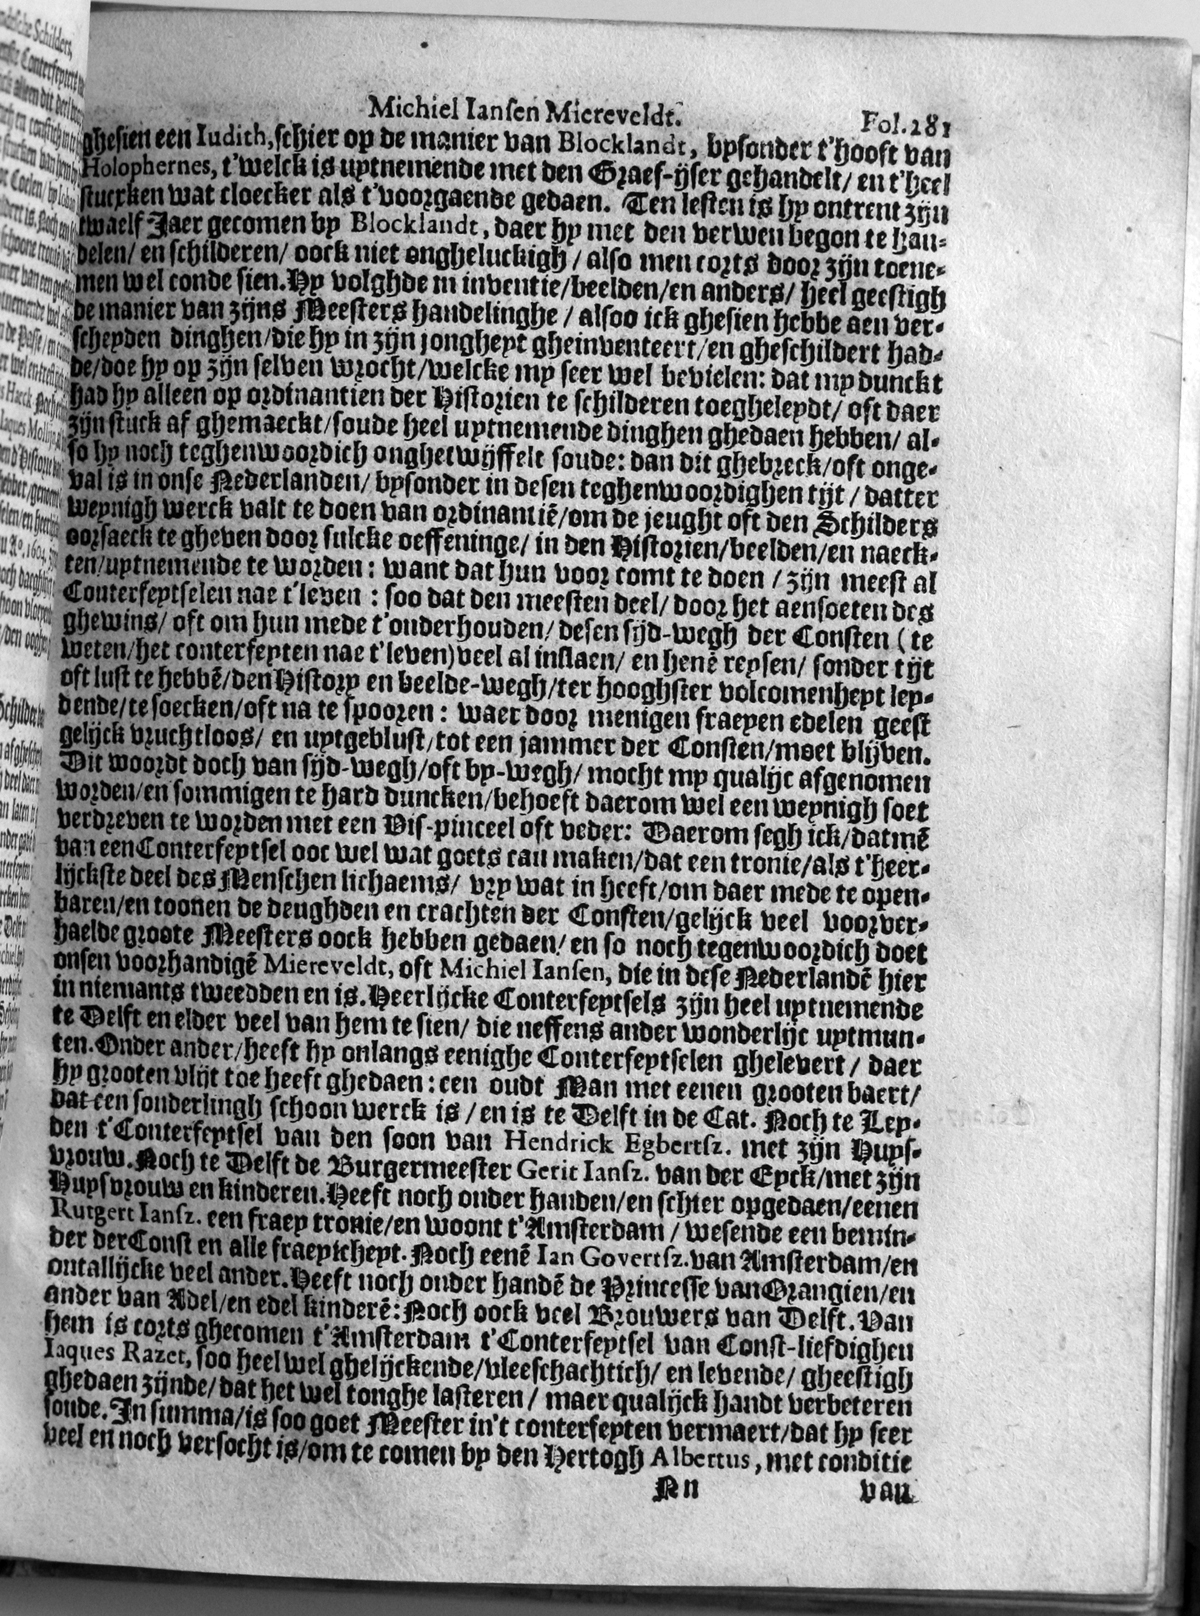 Michiel Iansen Miereveldt. Fol. 281
ghesien een Iudith, schier op de manier van Blocklandt, bysonder t'hooft van
Holophernes, t'welck is uytnemende met den Graef-ijser gehandelt/ en t'heel
stucxken wat cloecker als t'voorgaende gedaen. Ten lesten is hy ontrent zijn
twaelf Jaer gecomen by Blocklandt, daer hy met den verwen begon te han-
delen/ en schilderen/ oock niet ongheluckigh/ also men corts door zijn toene-
men wel conde sien. Hy volghde in inventie/ beelden/ en anders/ heel geestigh
de manier van zijns Meesters handelinghe/ alsoo ick ghesien hebbe aen ver-
scheyden dinghen/ die hy in zijn jongheyt gheinventeert/ en gheschildert had-
de/ doe hy op zijn selven wrocht/ welcke my seer wel bevielen: dat my dunckt
had hy alleen op ordinantien der Historien te schilderen toegheleydt/ oft daer
zijn stuck af ghemaeckt/ soude heel uytnemende dinghen ghedaen hebben/ al-
so hy noch teghenwoordich onghetwijffelt soude: dan dit ghebreck/ oft onge-
val is in onse Nederlanden/ bysonder in desen teghenwoordighen tijt/ datter
weynigh werck valt te doen van ordinantiē/ om de jeught oft den Schilders
oorsaeck te gheven door sulcke oeffeninge/ in den Historien/ beelden/ en naeck-
ten/ uytnemende te worden: want dat hun voor comt te doen/ zijn meest al
Conterfeytselen nae t'leven: soo dat den meesten deel/ door het aensoeten des
ghewins/ oft om hun mede t'onderhouden/ desen sijd-wegh der Consten (te
weten/ het conterfeyten nae t'leven) veel al inslaen/ en henē reysen/ sonder tijt
oft lust te hebbē/ den History en beelde-wegh/ ter hooghster volcomenheyt ley-
dende/ te soecken/ oft na te spooren: waer door menigen fraeyen edelen geest
gelijck vruchtloos/ en uytgeblust/ tot een jammer der Consten/ moet blijven.
Dit woordt doch van sijd-wegh/ oft by-wegh/ mocht my qualijc afgenomen
worden/ en sommigen te hard duncken/ behoeft daerom wel een weynigh soet
verdreven te worden met een Vis-pinceel oft veder: Daerom segh ick/ datmē
van een Conterfeytsel ooc wel wat goets can maken/ dat een tronie/ als t'heer-
lijckste deel des Menschen lichaems/ vry wat in heeft/ om daer mede te open-
baren/ en toonen de deughden en crachten der Consten/ gelijck veel voorver-
haelde groote Meesters oock hebben gedaen/ en so noch tegenwoordich doet
onsen voorhandigē Miereveldt, oft Michiel Iansen, die in dese Nederlandē hier
in niemants tweedden en is. Heerlijcke Conterfeytsels zijn heel uytnemende
te Delft en elder veel van hem te sien/ die neffens ander wonderlijc uytmun-
ten. Onder ander/ heeft hy onlangs eenighe Conterfeytselen ghelevert/ daer
hy grooten vlijt toe heeft ghedaen: een oudt Man met eenen grooten baert/
dat een sonderlingh schoon werck is/ en is te Delft in de Cat. Noch te Ley-
den t'Conterfeytsel van den soon van Hendrick Egbertsz. met zijn Huys-
vrouw. Noch te Delft de Burgermeester Gerit Iansz. van der Eyck/ met zijn
Huysvrouw en kinderen. Heeft noch onder handen/ en schier opgedaen/ eenen
Rutgert Iansz. een fraey tronie/ en woont t'Amsterdam/ wesende een bemin-
der der Const en alle fraeyicheyt. Noch eenē Ian Govertsz. van Amsterdam/ en
ontallijcke veel ander. Heeft noch onder handē de Princesse van Orangien/ en
ander van Adel/ en edel kinderē: Noch oock veel Brouwers van Delft. Van
hem is corts ghecomen t'Amsterdam t'Conterfeytsel van Const-liefdighen
Iaques Razet, soo heel wel ghelijckende/ vleeschachtich/ en levende/ gheestigh
ghedaen zijnde/ dat het wel tonghe lasteren/ maer qualijck handt verbeteren
soude. In summa/ is soo goet Meester in't conterfeyten vermaert/ dat hy seer
veel en noch versocht is/ om te comen by den Hertogh Albertus, met conditie
Nn van